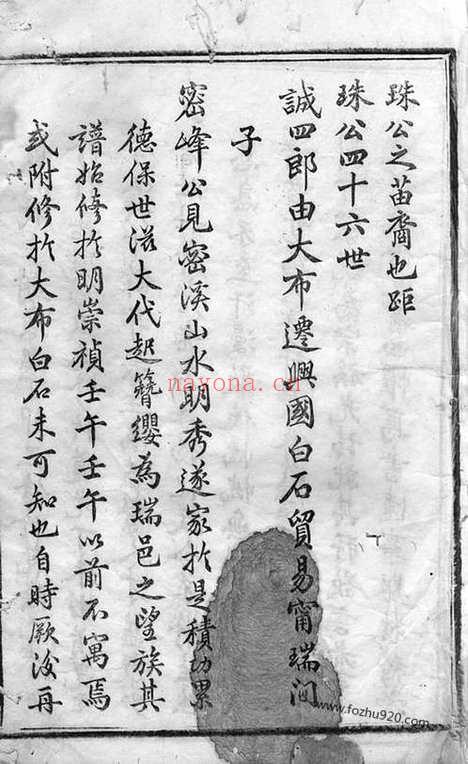 珠公之苗裔也距
珠公四十六世
誠四郎由大布遷興國白石貿易甯瑞间
子
密峰公見密溪山水明秀遂家於是積功累
德保世滋大代起簪纓為瑞邑之望族其
譜始修於明崇禎壬午壬午以前不寓焉
或附修於大布白石未可知也自時厥後再
nayona.cn
www.fozhu920.com